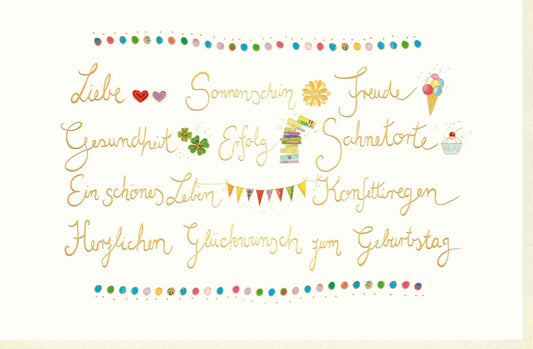 Liebe Sonnenschein Freude
Gesundheit Erfolg Sahnetorte
Ein schönes Leben Konfettiregen
Herzlichen Glückwunsch zum Geburtstag